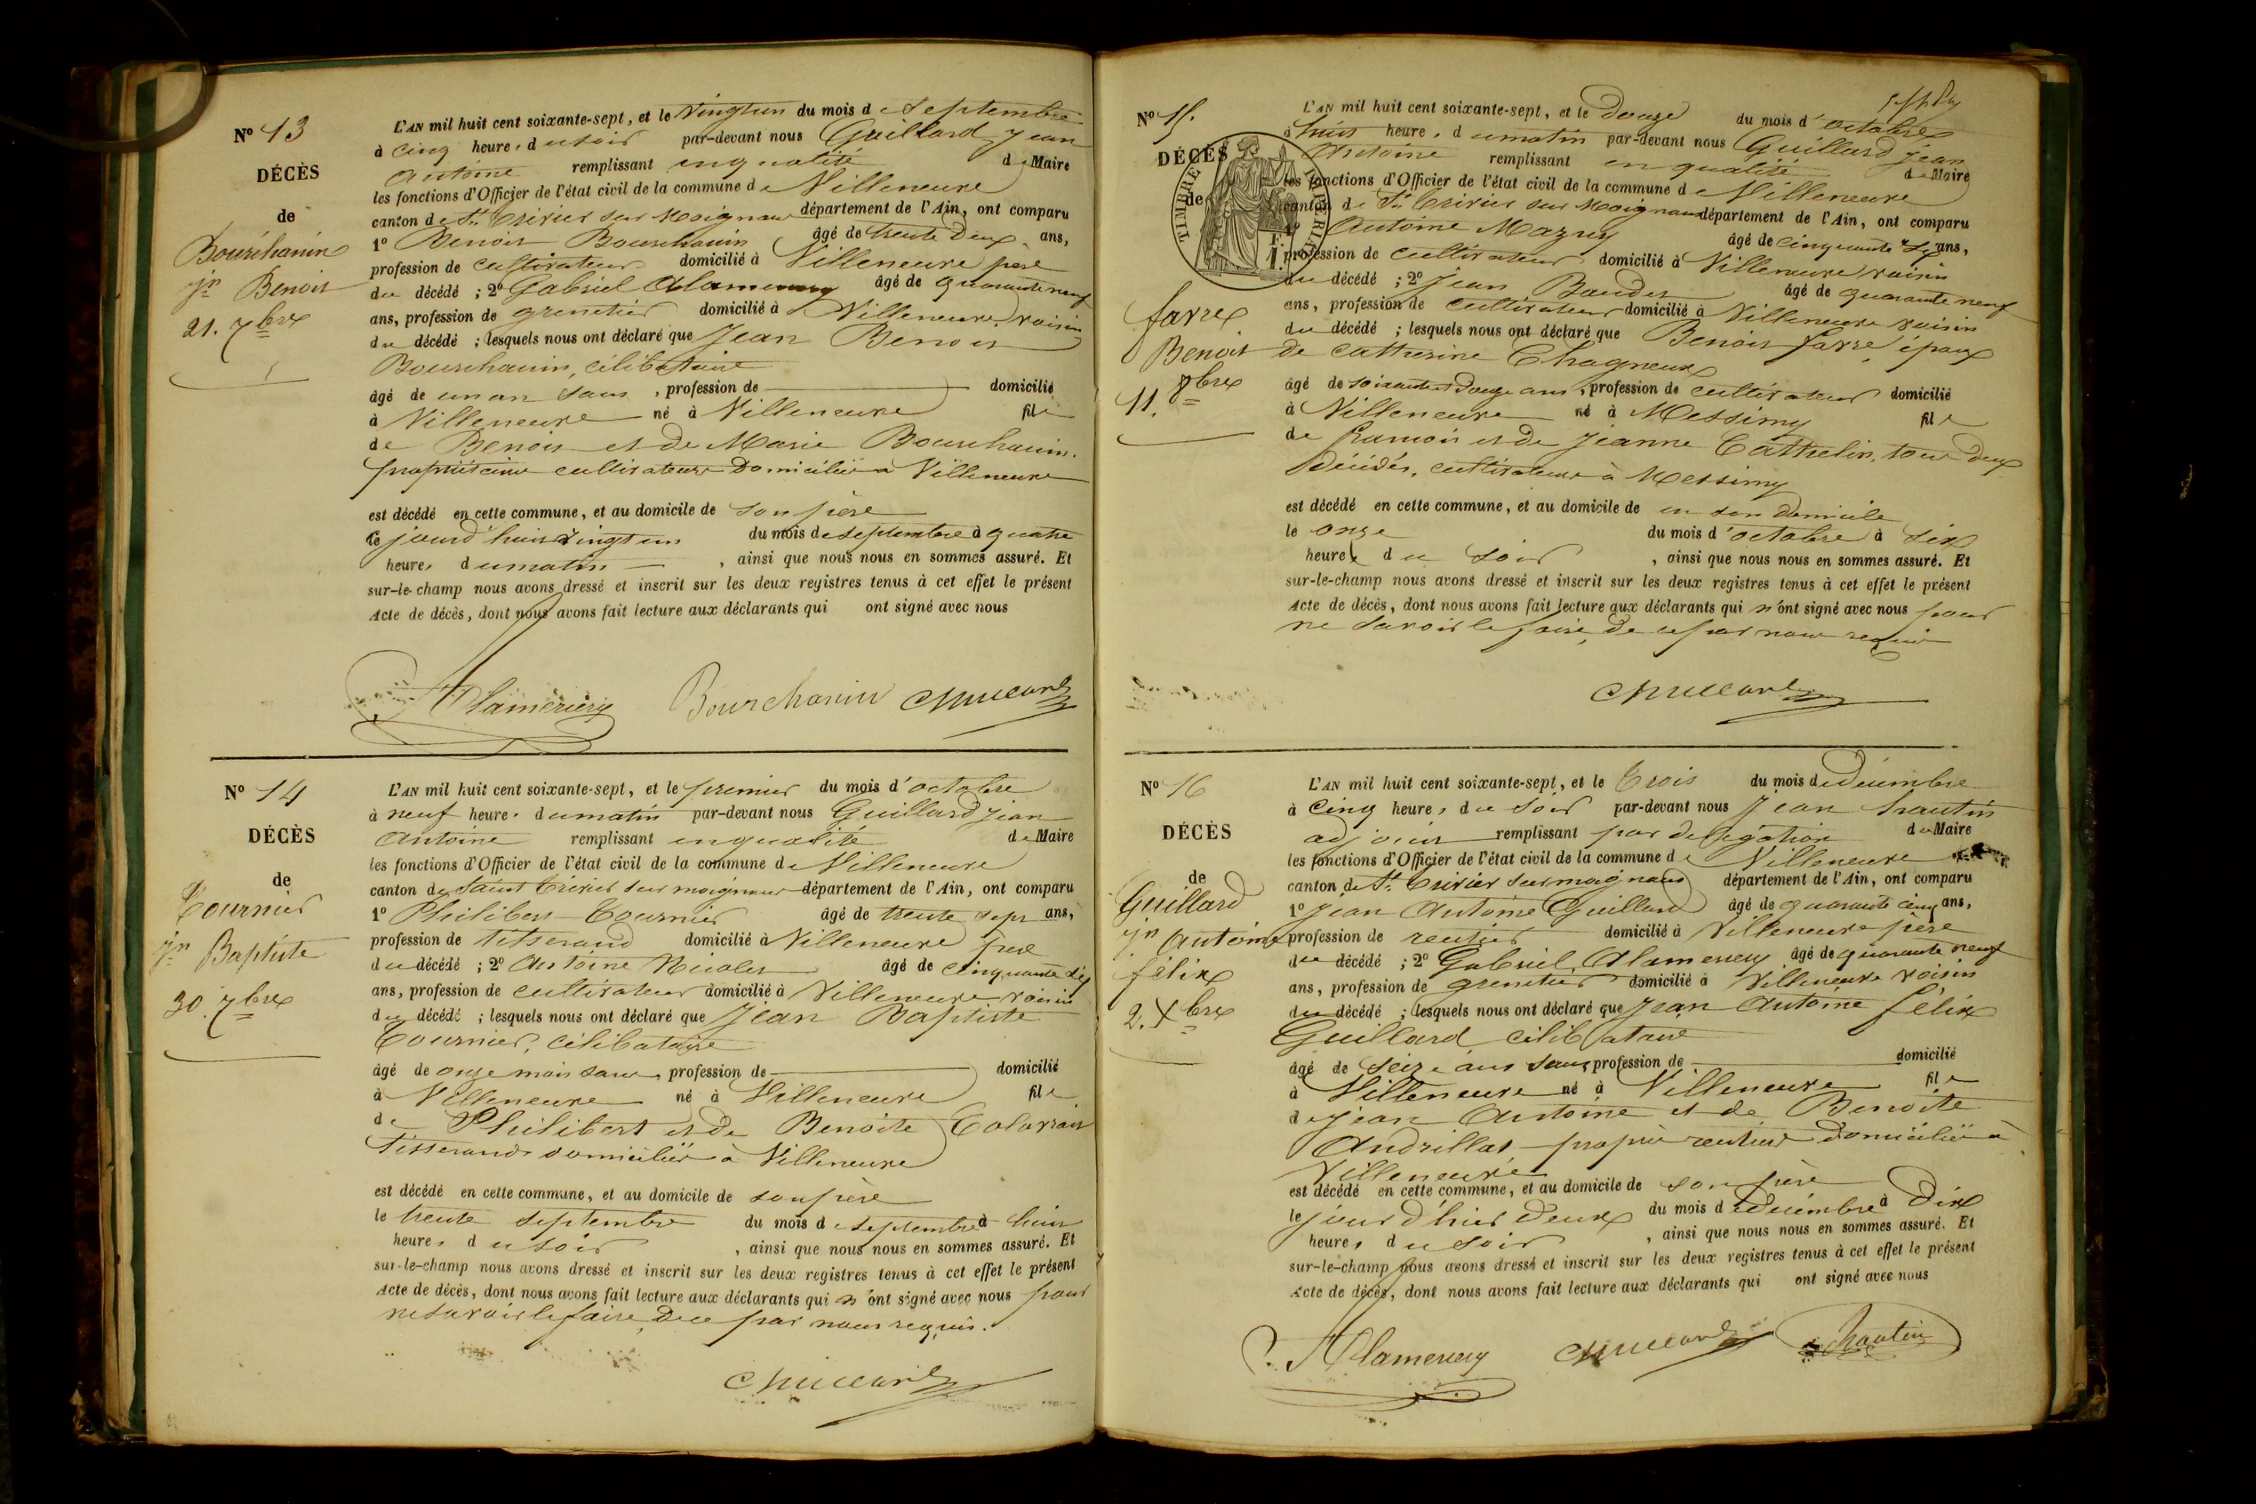 Nº 13
DÉCÈS
de
Bourchanin
jn Benoit
21. 7bre
L'AN mil huit cent soixante-sept, et le vingtun du mois de septembre
à cinq heures du soir par-devant nous Guillard Jean
Antoine remplissant en qualité de Maire
les fonctions d'Officier de l'état civil de la commune de Villeneuve
canton de St. Trivier sur Moignans département de l'Ain, ont comparu
1º Benoit Bourchanin âgé de trente deux ans,
profession de cultivateur domicilié à Villeneuve père
du décédé ; 2º Gabriel Alamercery âgé de quarante neuf
ans, profession de grenetier domicilié à Villeneuve voisin
du décédé ; lesquels nous ont déclaré que Jean Benoit
Bourchanin, célibataire
âgé de un an sans , profession de domicilié
à Villeneuve né à Villeneuve fils
de Benoit et de Marie Bourchanin.
propriétaires cultivateurs domiciliés à Villeneuve
est décédé en cette commune, et au domicile de son père
le jourd'hui vingt un du mois de septembre à quatre
heures du matin , ainsi que nous nous en sommes assuré. Et
sur-le-champ nous avons dressé et inscrit sur les deux registres tenus à cet effet le présent
Acte de décès, dont nous avons fait lecture aux déclarants qui ont signé avec nous
Alamercery Bourchanin Guillard
Nº 14
DÉCÈS
de
Tournier
jn Baptiste
30. 7bre
L'AN mil huit cent soixante-sept, et le premier du mois d'octobre
à neuf heures du matin par-devant nous Guillard Jean
Antoine remplissant en qualité de Maire
les fonctions d'Officier de l'état civil de la commune de Villeneuve
canton de Saint Trivier sur moignans département de l'Ain, ont comparu
1º Philibert Tournier âgé de trente sept ans,
profession de tisserand domicilié à Villeneuve père
du décédé ; 2º Antoine Nicolet âgé de cinquante six
ans, profession de cultivateur domicilié à Villeneuve voisin
du décédé ; lesquels nous ont déclaré que Jean Baptiste
Tournier, célibataire
âgé de onze mois sans , profession de domicilié
à Villeneuve né à Villeneuve fils
de Philibert et de Benoite
tisserands domiciliés à Villeneuve
est décédé en cette commune, et au domicile de son père
le trente septembre du mois de septembre à huit
heures du soir , ainsi que nous nous en sommes assuré. Et
sur-le-champ nous avons dressé et inscrit sur les deux registres tenus à cet effet le présent
Acte de décès, dont nous avons fait lecture aux déclarants qui n'ont signé avec nous pour
ne savoir le faire, de ce par nous requis.
Guillard
Nº 15.
DÉCÈS
de
TIMBRE IMPÉRIAL
1 F.
favre
Benoit
11. 8bre
L'AN mil huit cent soixante-sept, et le douze du mois d'octobre
à huit heures du matin par-devant nous Guillard Jean
Antoine remplissant en qualité de Maire
les fonctions d'Officier de l'état civil de la commune de Villeneuve
canton de St. Trivier sur Moignans département de l'Ain, ont comparu
1º Antoine Mazuy âgé de cinquante ans,
profession de cultivateur domicilié à Villeneuve voisin
du décédé ; 2º Jean Baudet âgé de quarante neuf
ans, profession de cultivateur domicilié à Villeneuve voisin
du décédé ; lesquels nous ont déclaré que Benoit favre, époux
de catherine Chagneux
âgé de soixante et douze ans, profession de cultivateur domicilié
à Villeneuve né à Messimy fils
de François et de Jeanne Cathelin, tous deux
décédés, cultivateurs à Messimy
est décédé en cette commune, et au domicile de en son domicile
le onze du mois d'octobre à six
heures du soir , ainsi que nous nous en sommes assuré. Et
sur-le-champ nous avons dressé et inscrit sur les deux registres tenus à cet effet le présent
Acte de décès, dont nous avons fait lecture aux déclarants qui n'ont signé avec nous pour
ne savoir le faire, de ce par nous requis
Guillard
Nº 16
DÉCÈS
de
Guillard
jn Antoine
félix
2. Xbre
L'AN mil huit cent soixante-sept, et le trois du mois de décembre
à cinq heures du soir par-devant nous Jean hautin
adjoint remplissant par délégation du Maire
les fonctions d'Officier de l'état civil de la commune de Villeneuve
canton de St. Trivier sur moignans département de l'Ain, ont comparu
1º Jean Antoine Guillard âgé de quarante cinq ans,
profession de rentier domicilié à Villeneuve père
du décédé ; 2º Gabriel Alamercery âgé de quarante neuf
ans, profession de grenetier domicilié à Villeneuve voisin
du décédé ; lesquels nous ont déclaré que Jean Antoine félix
Guillard célibataire
âgé de seize ans sans profession de domicilié
à Villeneuve né à Villeneuve fils
de Jean Antoine et de Benoite
Andrillat propres rentiers domiciliés à
Villeneuve
est décédé en cette commune, et au domicile de son père
le jour d'hier deux du mois de décembre à dix
heures du soir , ainsi que nous nous en sommes assuré. Et
sur-le-champ nous avons dressé et inscrit sur les deux registres tenus à cet effet le présent
Acte de décès, dont nous avons fait lecture aux déclarants qui ont signé avec nous
Alamercery Guillard hautin